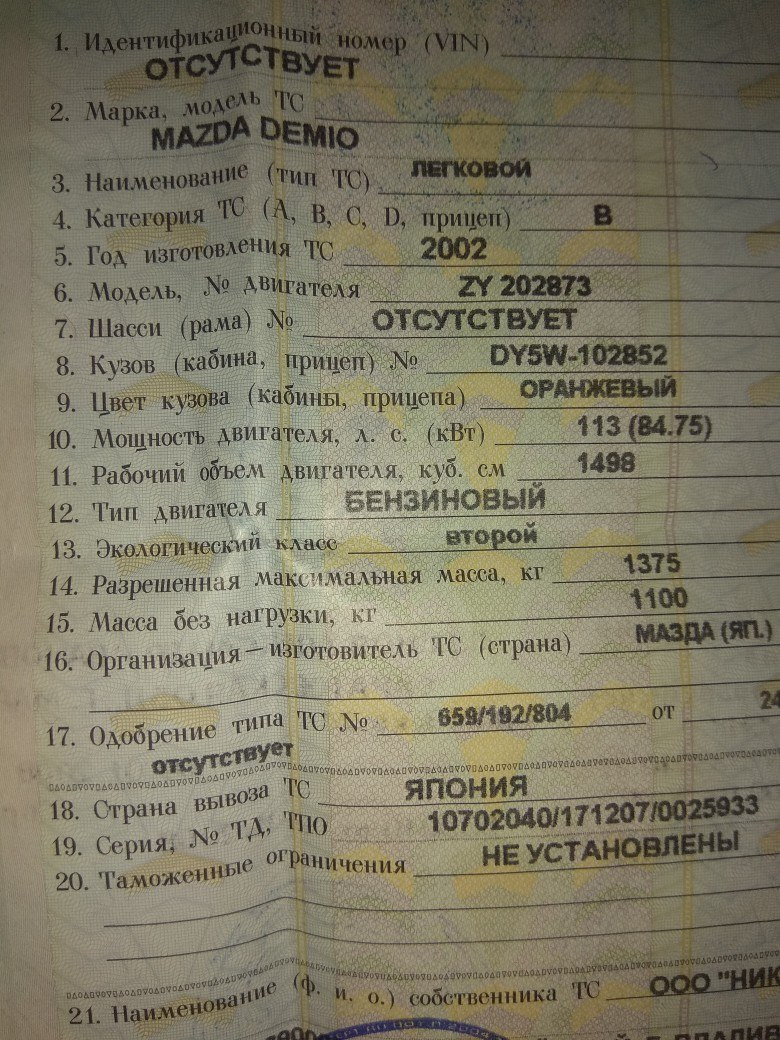 1. Идентификационный номер (VIN)
ОТСУТСТВУЕТ
2. Марка, модель ТС
MAZDA DEMIO
3. Наименование (тип ТС) ЛЕГКОВОЙ
4. Категория ТС (А, В, С, D, прицеп) В
5. Год изготовления ТС 2002
6. Модель, № двигателя ZY 202873
7. Шасси (рама) № ОТСУТСТВУЕТ
8. Кузов (кабина, прицеп) № DY5W-102852
9. Цвет кузова (кабины, прицепа) ОРАНЖЕВЫЙ
10. Мощность двигателя, л. с. (кВт) 113 (84.75)
11. Рабочий объем двигателя, куб. см 1498
12. Тип двигателя БЕНЗИНОВЫЙ
13. Экологический класс второй
14. Разрешенная максимальная масса, кг 1375
15. Масса без нагрузки, кг 1100
16. Организация – изготовитель ТС (страна) МАЗДА (ЯП.)
17. Одобрение типа ТС № 659/192/804 от 24
отсутствует
18. Страна вывоза ТС ЯПОНИЯ
19. Серия, № ТД, ТПО 10702040/171207/0025933
20. Таможенные ограничения НЕ УСТАНОВЛЕНЫ
21. Наименование (ф. и. о.) собственника ТС ООО "НИК